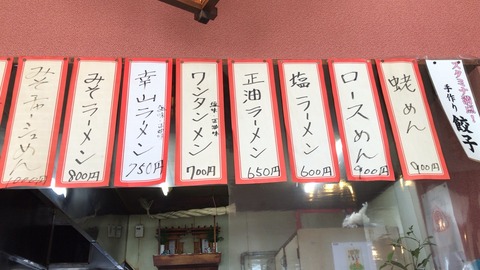 みそチャーシューめん
1000円
みそラーメン
800円
幸山ラーメン
750円
ワンタンメン
700円
正油ラーメン
650円
塩ラーメン
600円
ロースめん
900円
蛯めん
900円
手作り
餃子